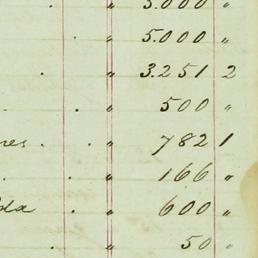 . " 5.000 "
. " 5.000 "
. " 3.251 2
. " 500 "
res . . " 782 1
. . " 166 "
da . " 600 "
. " 50 "